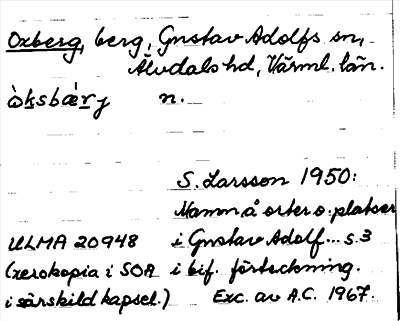 Oxberg, berg, Gustav Adolfs sn,
Älvdals hd, Värml. län.
ò̀ksbæ̀rj n.
S. Larsson 1950:
Namn å orter o. platser
ULMA 20948 i Gustav Adolf... s. 3
(xerokopia i SOA i bif. förteckning.
i särskild kapsel.) Exc. av A.C. 1967.